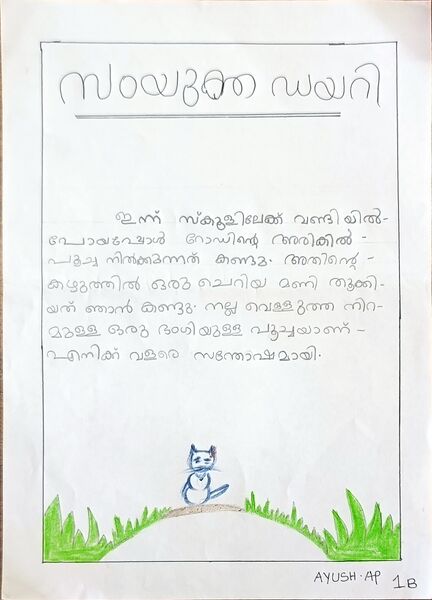 സംയുക്ത ഡയറി
ഇന്ന് സ്കൂളിലേക്ക് വണ്ടിയിൽ-
പോയപ്പോൾ റോഡിന്റെ അരികിൽ-
പൂച്ച നിൽക്കുന്നത് കണ്ടു. അതിന്റെ-
കഴുത്തിൽ ഒരു ചെറിയ മണി തൂക്കി-
യത് ഞാൻ കണ്ടു. നല്ല വെള്ളുത്ത നിറ-
മുള്ള ഒരു ഭംഗിയുള്ള പൂച്ചയാണ്-
എനിക്ക് വളരെ സന്തോഷമായി.
AYUSH.AP 1B